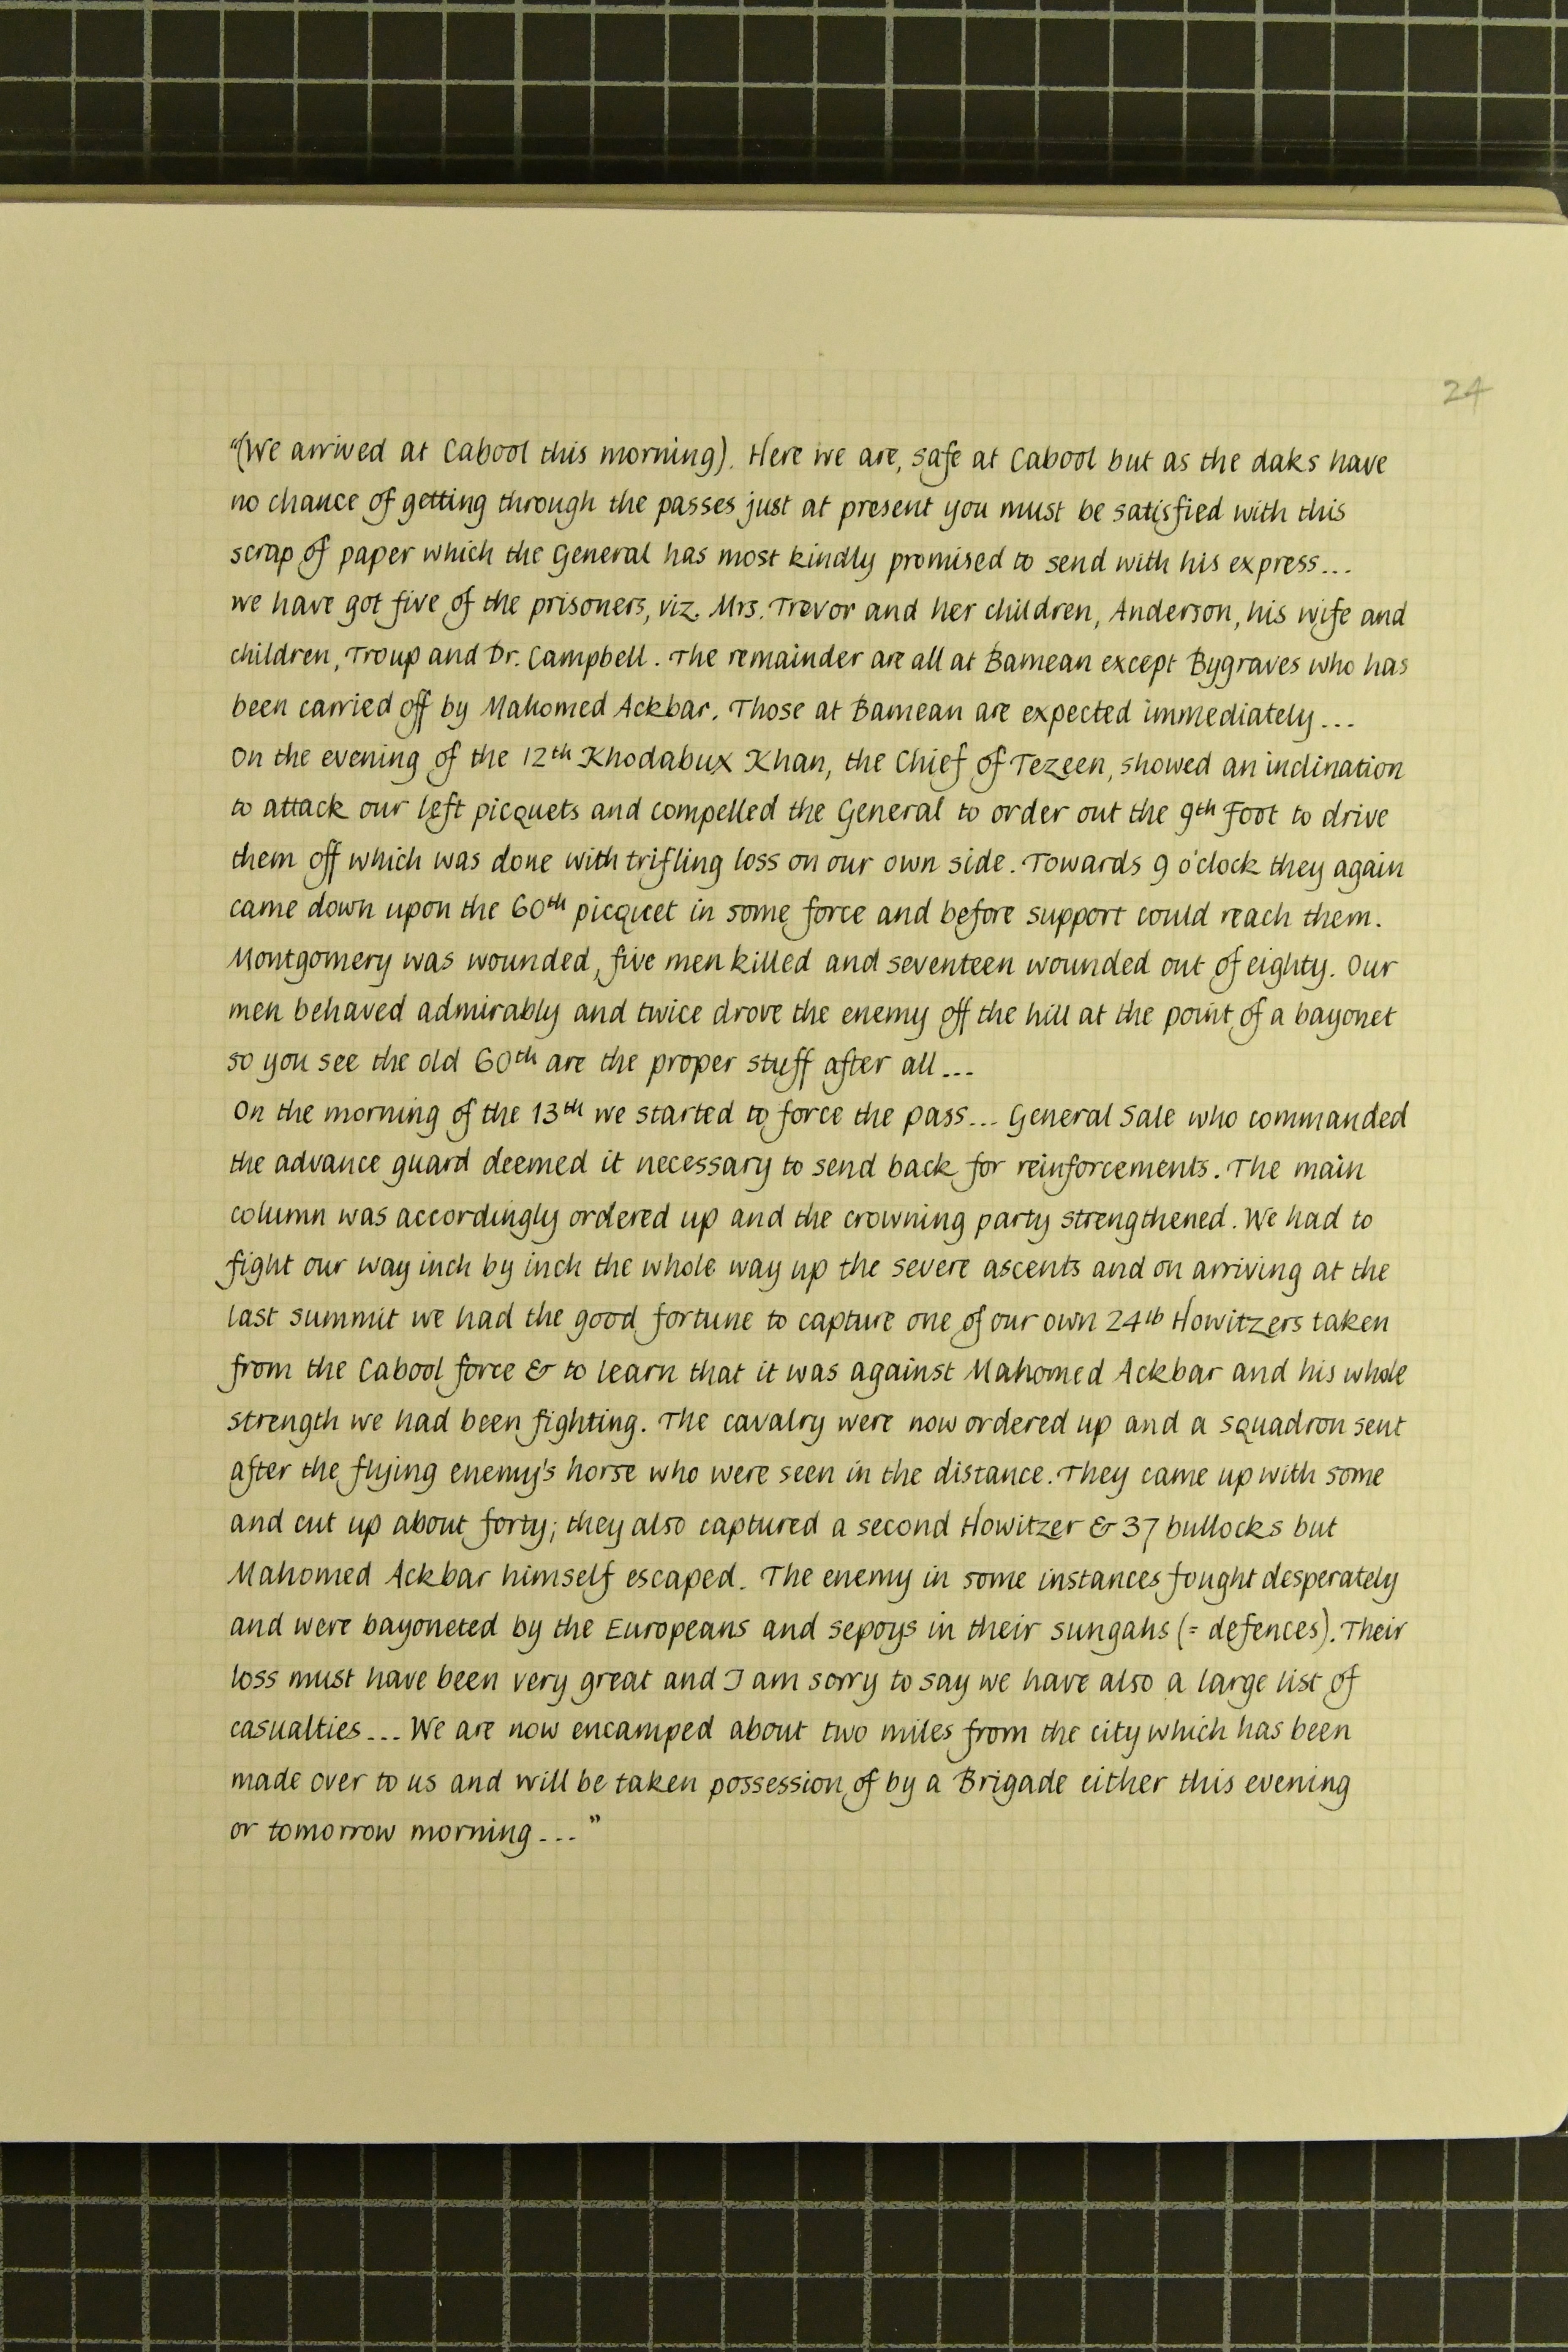 24
"(We arrived at Cabool this morning). Here we are, safe at Cabool but as the daks have
no chance of getting through the passes just at present you must be satisfied with this
scrap of paper which the General has most kindly promised to send with his express...
we have got five of the prisoners, viz. Mrs. Trevor and her children, Anderson, his wife and
children, Troup and Dr. Campbell. The remainder are all at Bamean except Bygraves who has
been carried off by Mahomed Ackbar. Those at Bamean are expected immediately...
On the evening of the 12th Khodabux Khan, the Chief of Tezeen, showed an inclination
to attack our left picquets and compelled the General to order out the 9th Foot to drive
them off which was done with trifling loss on our own side. Towards 9 o'clock they again
came down upon the 60th picquet in some force and before support could reach them.
Montgomery was wounded, five men killed and seventeen wounded out of eighty. Our
men behaved admirably and twice drove the enemy off the hill at the point of a bayonet
so you see the old 60th are the proper stuff after all...
On the morning of the 13th we started to force the pass... General Sale who commanded
the advance guard deemed it necessary to send back for reinforcements. The main
column was accordingly ordered up and the crowning party strengthened. We had to
fight our way inch by inch the whole way up the severe ascents and on arriving at the
last summit we had the good fortune to capture one of our own 24lb Howitzers taken
from the Cabool force & to learn that it was against Mahomed Ackbar and his whole
strength we had been fighting. The cavalry were now ordered up and a squadron sent
after the flying enemy's horse who were seen in the distance. They came up with some
and cut up about forty; they also captured a second Howitzer & 37 bullocks but
Mahomed Ackbar himself escaped. The enemy in some instances fought desperately
and were bayoneted by the Europeans and sepoys in their sungahs (= defences). Their
loss must have been very great and I am sorry to say we have also a large list of
casualties... We are now encamped about two miles from the city which has been
made over to us and will be taken possession of by a Brigade either this evening
or tomorrow morning..."